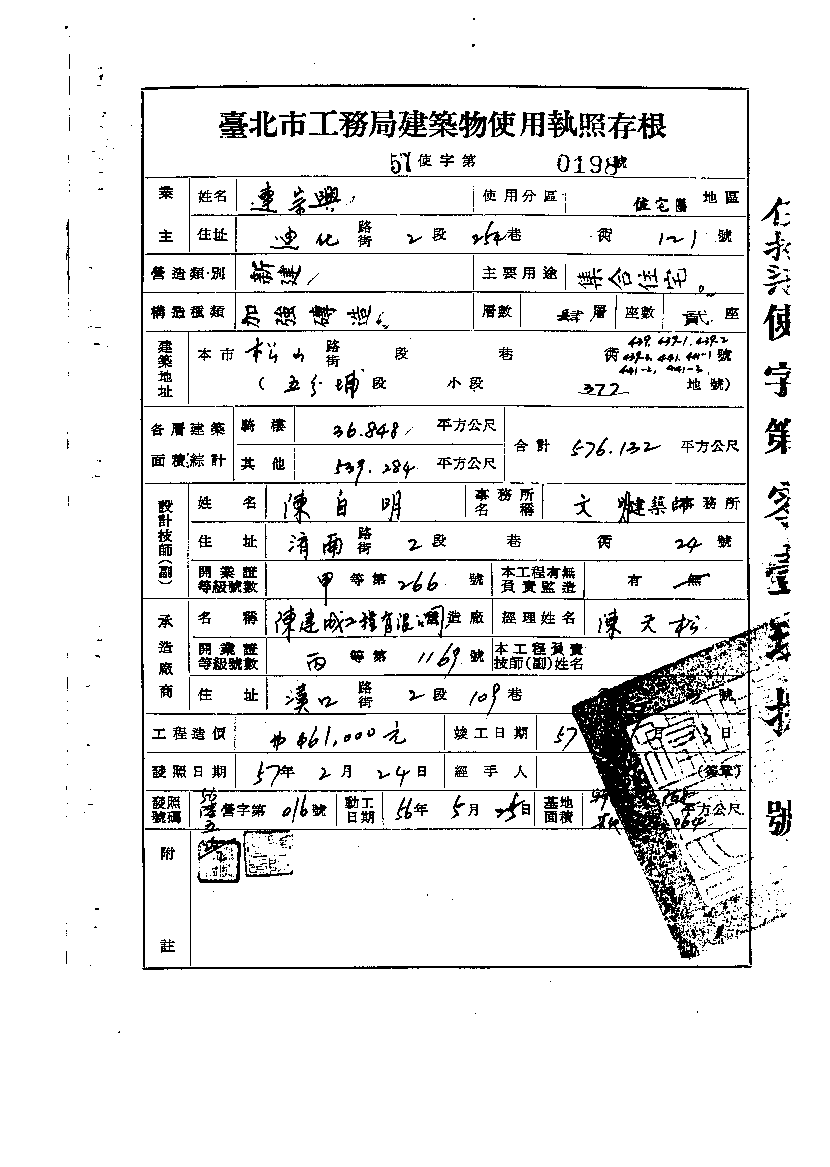 臺北市工務局建築物使用執照存根
57使字第 0198號
業主 姓名 連崇興 使用分區 住宅 地區
住址 迪化 路街 2段 254巷 衖 121號
營造類別 新建 主要用途 集合住宅。
構造種類 加強磚造 層數 肆層 座數 貳座
建築地址 本市 松山 路街 段 巷 衖 439. 439-1. 439-2 439-3. 441. 441-1 441-2. 441-3. 號
(五分埔段 小段 372 地號)
各層建築面積綜計 騎樓 36.848 平方公尺 合計 576.132 平方公尺
其他 539.284 平方公尺
設計技師(副) 姓名 陳自明 事務所名稱 文 建築師事務所
住址 濟南 路街 2段 巷 衖 24號
開業證等級號數 甲等第266號 本工程有無負責監造 有 無
承造廠商 名稱 陳建成工程有限 造廠 經理姓名 陳天松
開業證等級號數 丙等第1169號 本工程負責技師(副)姓名
住址 漢口 路街 2段 109巷 號
工程造價 461,000元 竣工日期 57 月 3日
發照日期 57年2月24日 經手人 (簽章)
發照號碼 營字第016號 動工日期 56年5月25日 基地面積 平方公尺
附註
使字第零壹 號